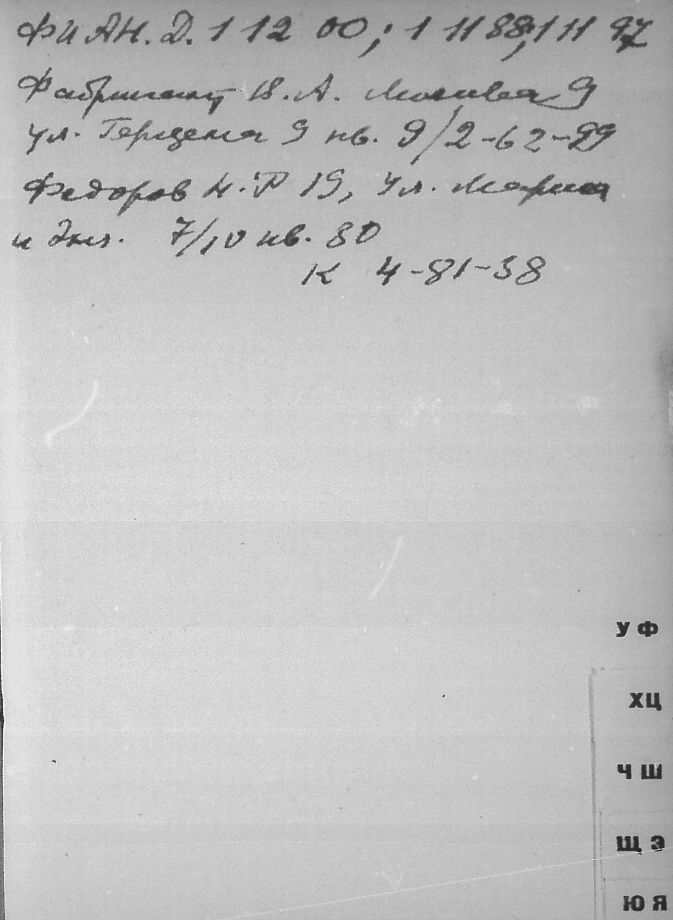 ФИАН. Д. 1 12 00; 1 11 88; 1 11 97
Фабрикант В. А. Москва 9
ул. Герцена 9 кв. 9/2-62-29
Федоров Н. Ф 19, ул. Маркса
и Энг. 7/10 кв. 80
К 4-81-38
У Ф
Х Ц
Ч Ш
Щ Э
Ю Я